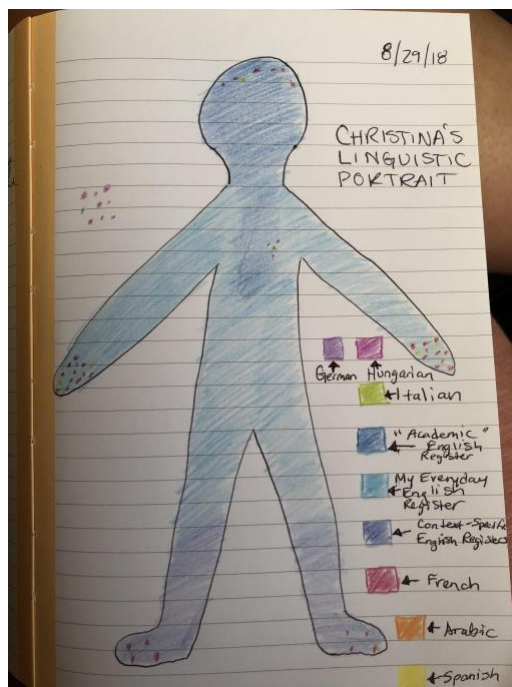 8/29/18
CHRISTINA'S
LINGUISTIC
PORTRAIT
German
Hungarian
Italian
"Academic"
English
Register
My Everyday
English
Register
Context-Specific
English Registers
French
Arabic
Spanish